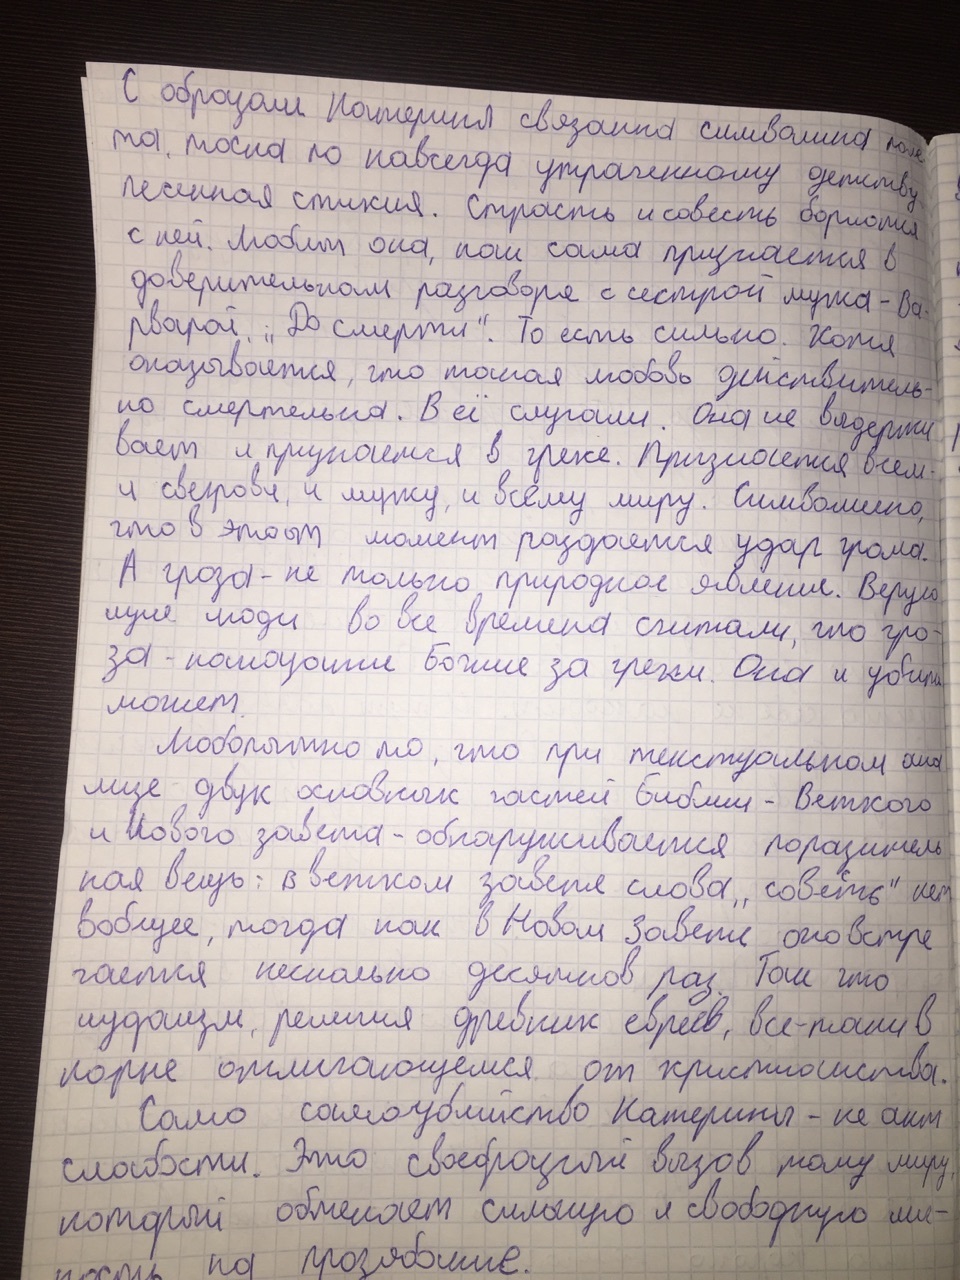 С образом Катерины связанна символика поле
та, тоска по навсегда утраченному детству
песенная стихия. Страсть и совесть борются
с ней. Любит она, как сама признается в
доверительном разговоре с сестрой мужа - Ва-
рварой, „До смерти". То есть сильно. Хотя
оказывается, что такая любовь действитель-
но смертельна. В её случаи. Она не выдержи
вает и признается в грехе. Признается всем-
и свекрови, и мужу, и всему миру. Символично,
что в этот момент раздается удар грома.
А гроза - не только природное явление. Верую
щие люди во все времена считали, что гро-
за - наказание Божие за грехи. Она и убить
может.
Любопытно то, что при текстуальном ана
лизе двух основных частей Библии - Ветхого
и Нового завета - обнаруживается поразитель
ная вещь: в ветхом завете слова „совесть" нет
вобщее, тогда как в Новом Завете оно встре
чается несколько десятков раз. Так что
иудаизм, религия древних евреев, все-таки в
корне отличающемся от христианства.
Само самоубийство Катерины - не акт
слабости. Это своеобразный вызов тому миру,
который обрекает сильную и свободную лич-
ность на прозябание.